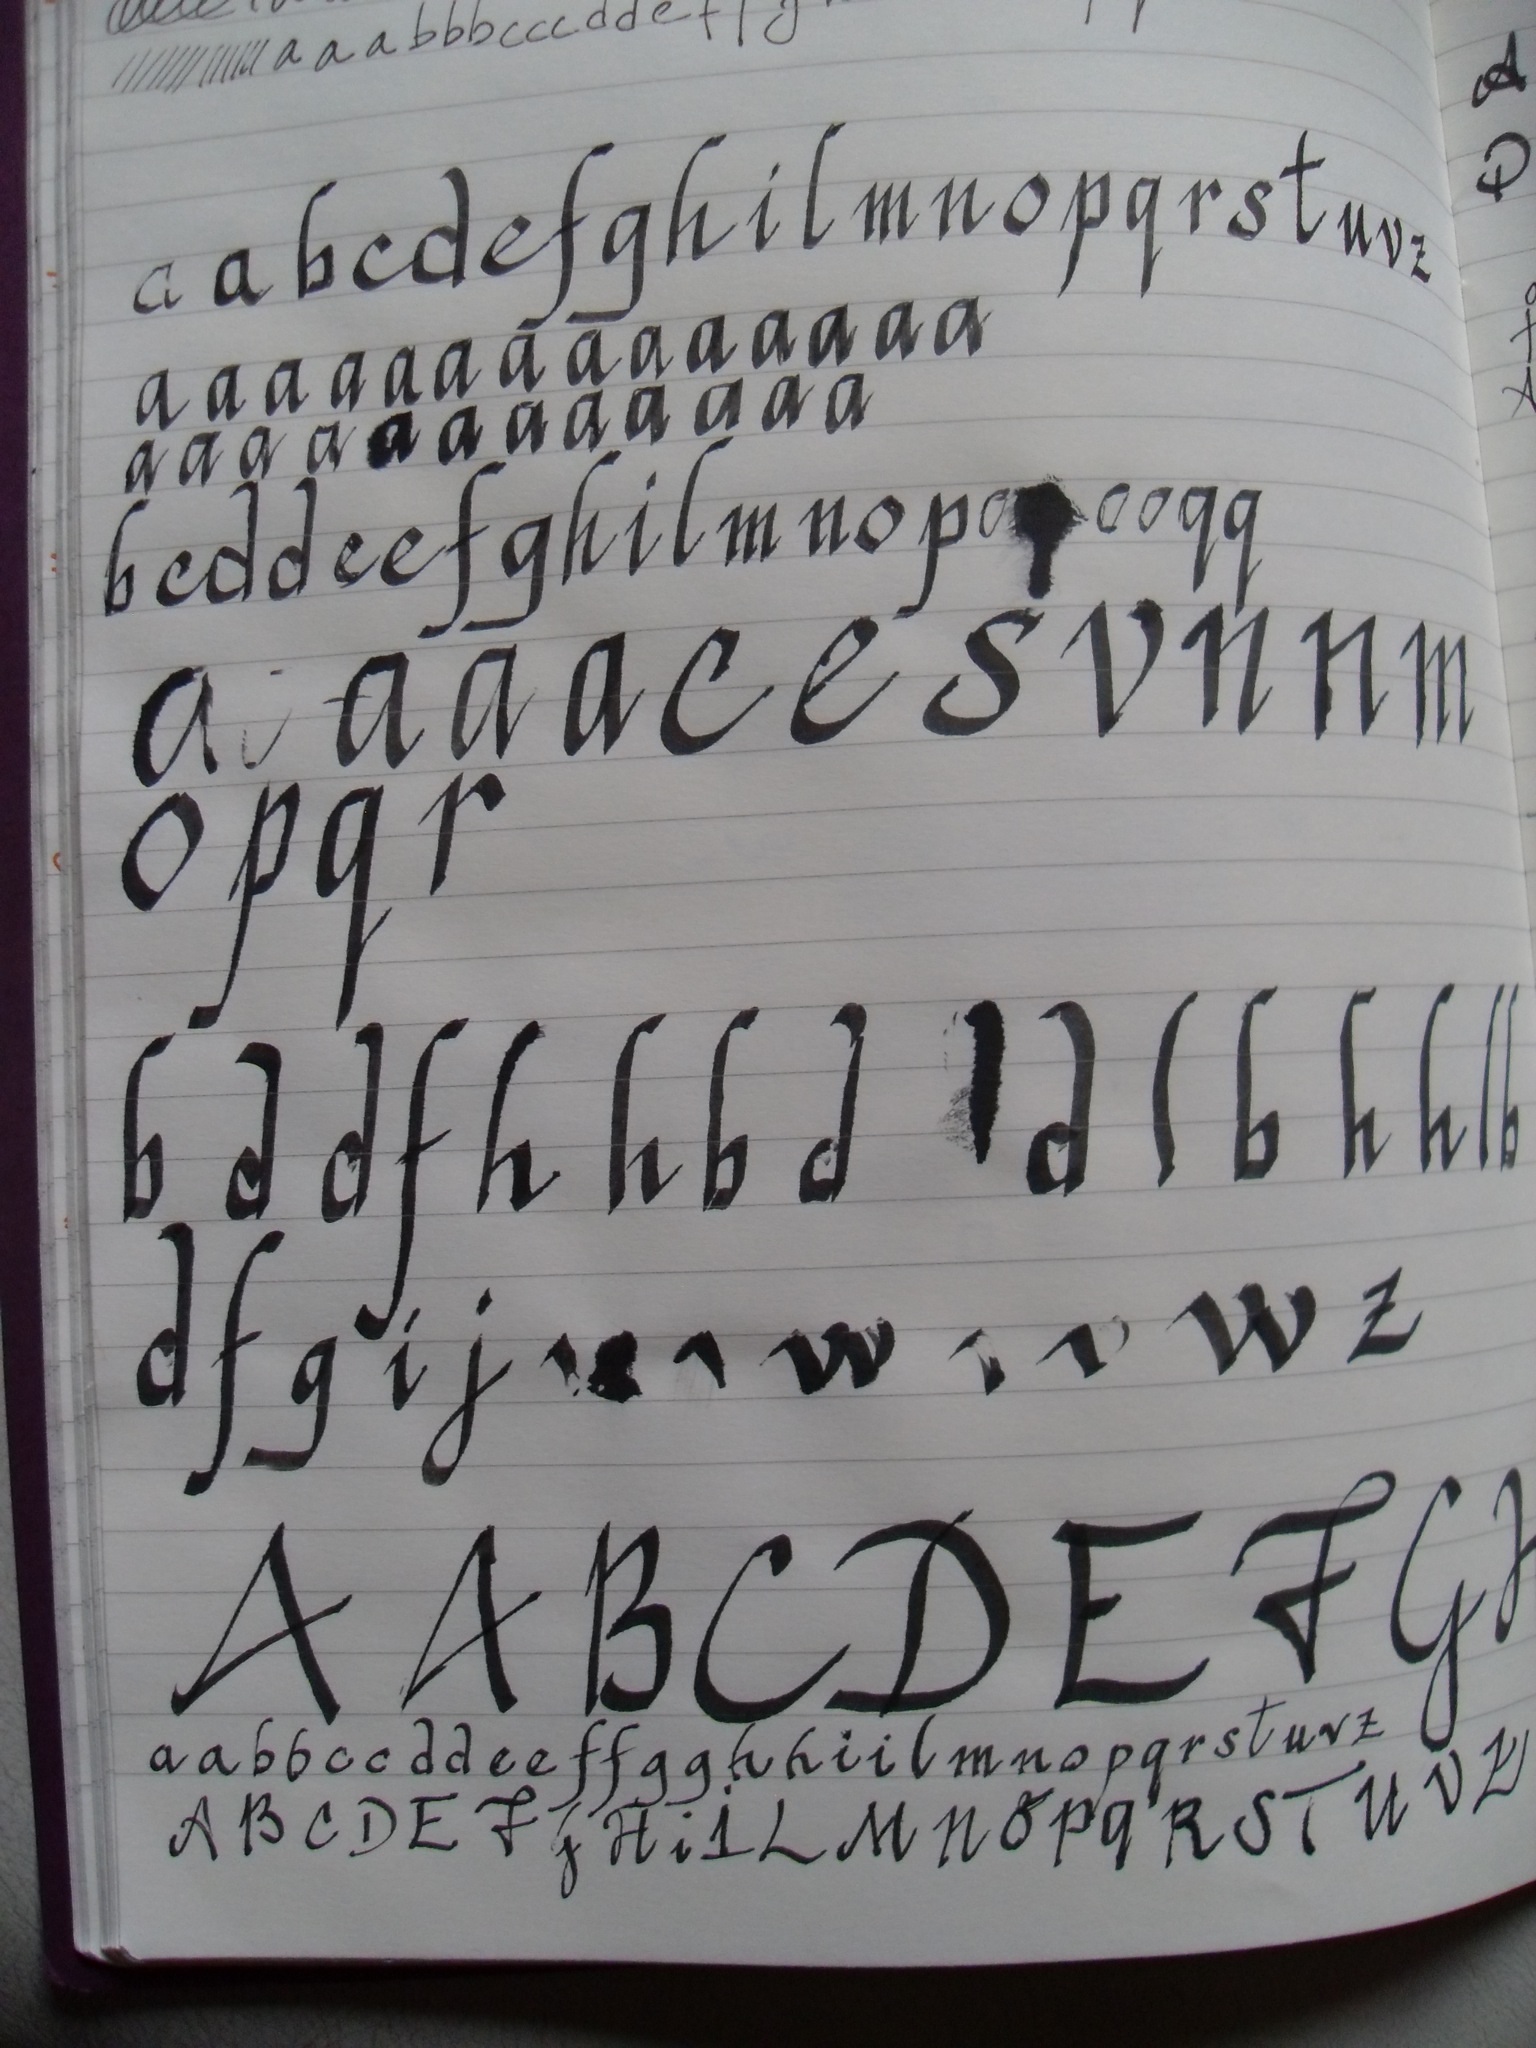 a a a b b b c c c d d e f f g
a a b c d e f g h i l m n o p q r s t u v z
a a a a a a a a a a a a a a a
a a a a a a a a a a a a a
b c d d e e f g h i l m n o p o o o q q
a a a a c e s v n n m
o p q r
b d d f h h b d l d l b h h l b
d f g i j w v w z
A A B C D E F G H
a a b b c c d d e e f f g g h h i i l m n o p q r s t u v z
A B C D E F g H i I L M N O P q R S T U V Z